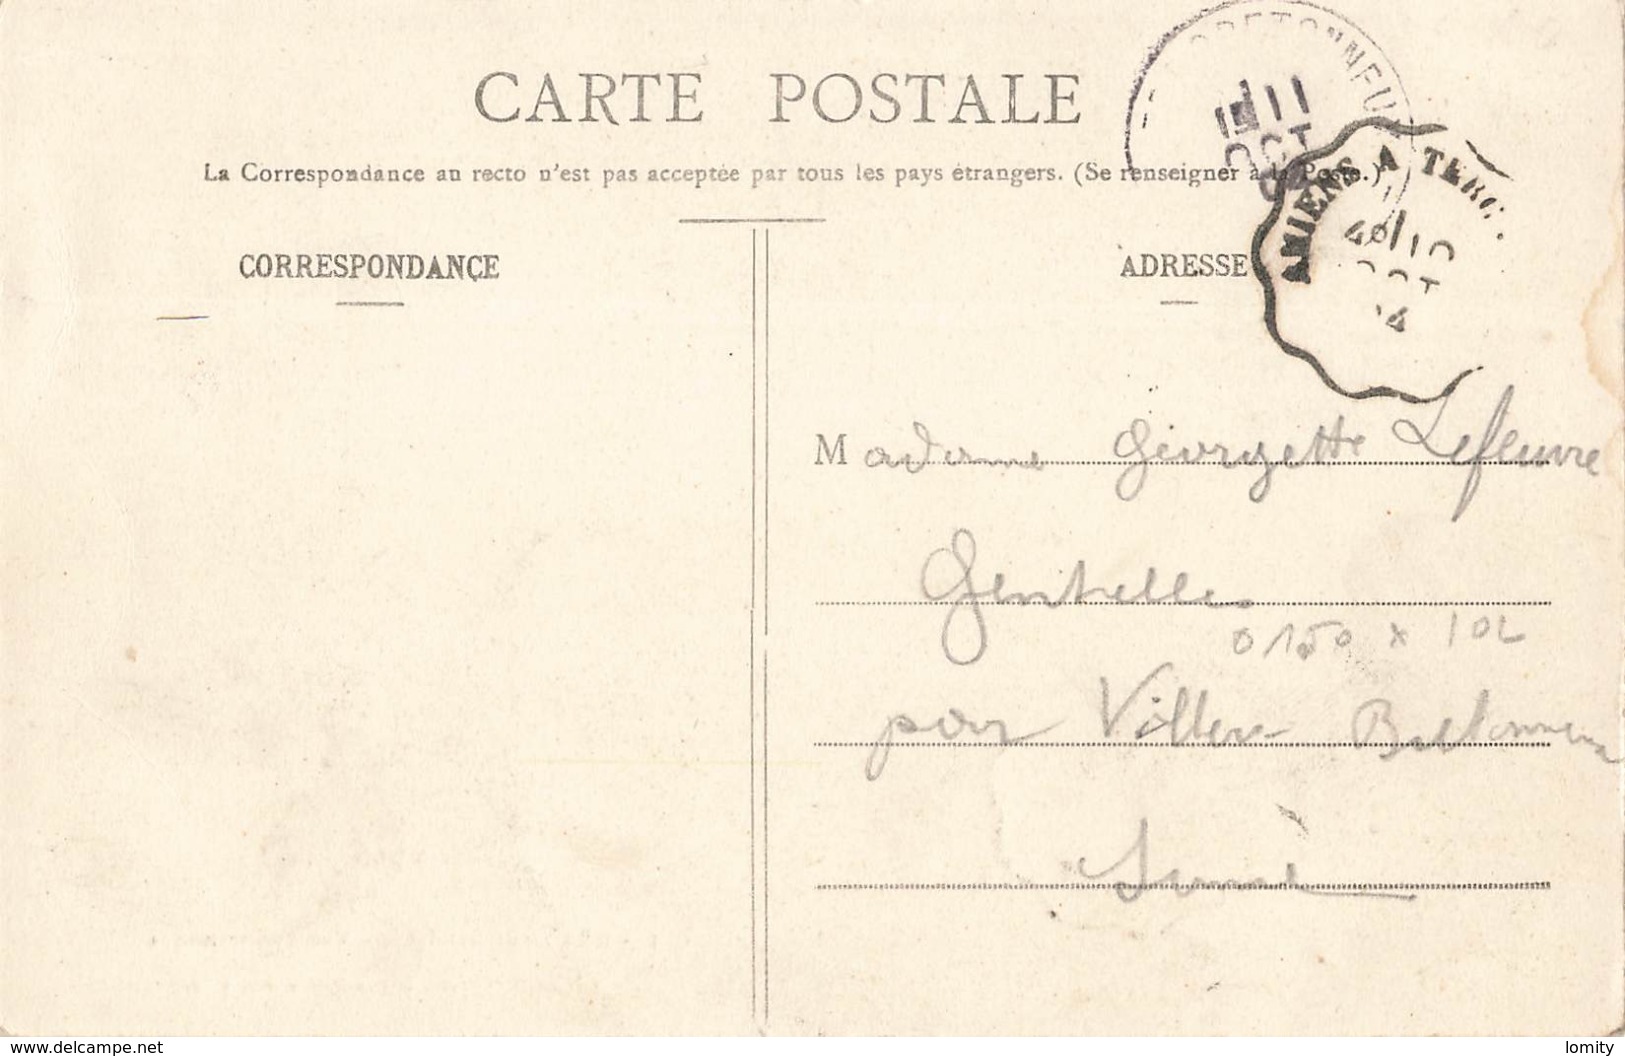 CARTE POSTALE
La Correspondance au recto n'est pas acceptée par tous les pays étrangers. (Se renseigner à la Poste.)
CORRESPONDANCE
ADRESSE
11
OCT
AMIENS A TERG
10
OCT
Madame Georgette Lefeuvre
Gentelles
par Villers Bretonneux
Somme
www.delcampe.net
lomity